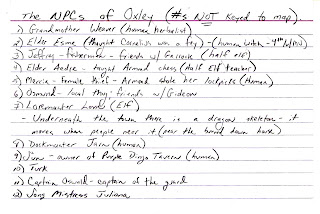 The NPCs of Oxley (#s NOT keyed to map).
1) Grandmother Weaver (human herbalist)
2) Elder Esme (thought Cornelius was a fey) - (human witch - 4th
3) Jeffrey - fisherman - friends w/ Garrick (half elf)
4) Elder Hodge - taught Armad chess (Half Elf teacher)
5) Marcia - Female thief - Armad stole her lockpicks (Human)
6) Osmund - local boy - friends w/ Gideon
7) Loremaster Lomil (Elf)
- Underneath the town there is a dragon skeleton - it
moves when people near it (near the burned down house)
8) Dockmaster Jain (human)
9) - owner of Purple Dingo Tavern (human)
10) Turk
11) Captain Oswald - captain of the guard
12) Song Mistress Juliana